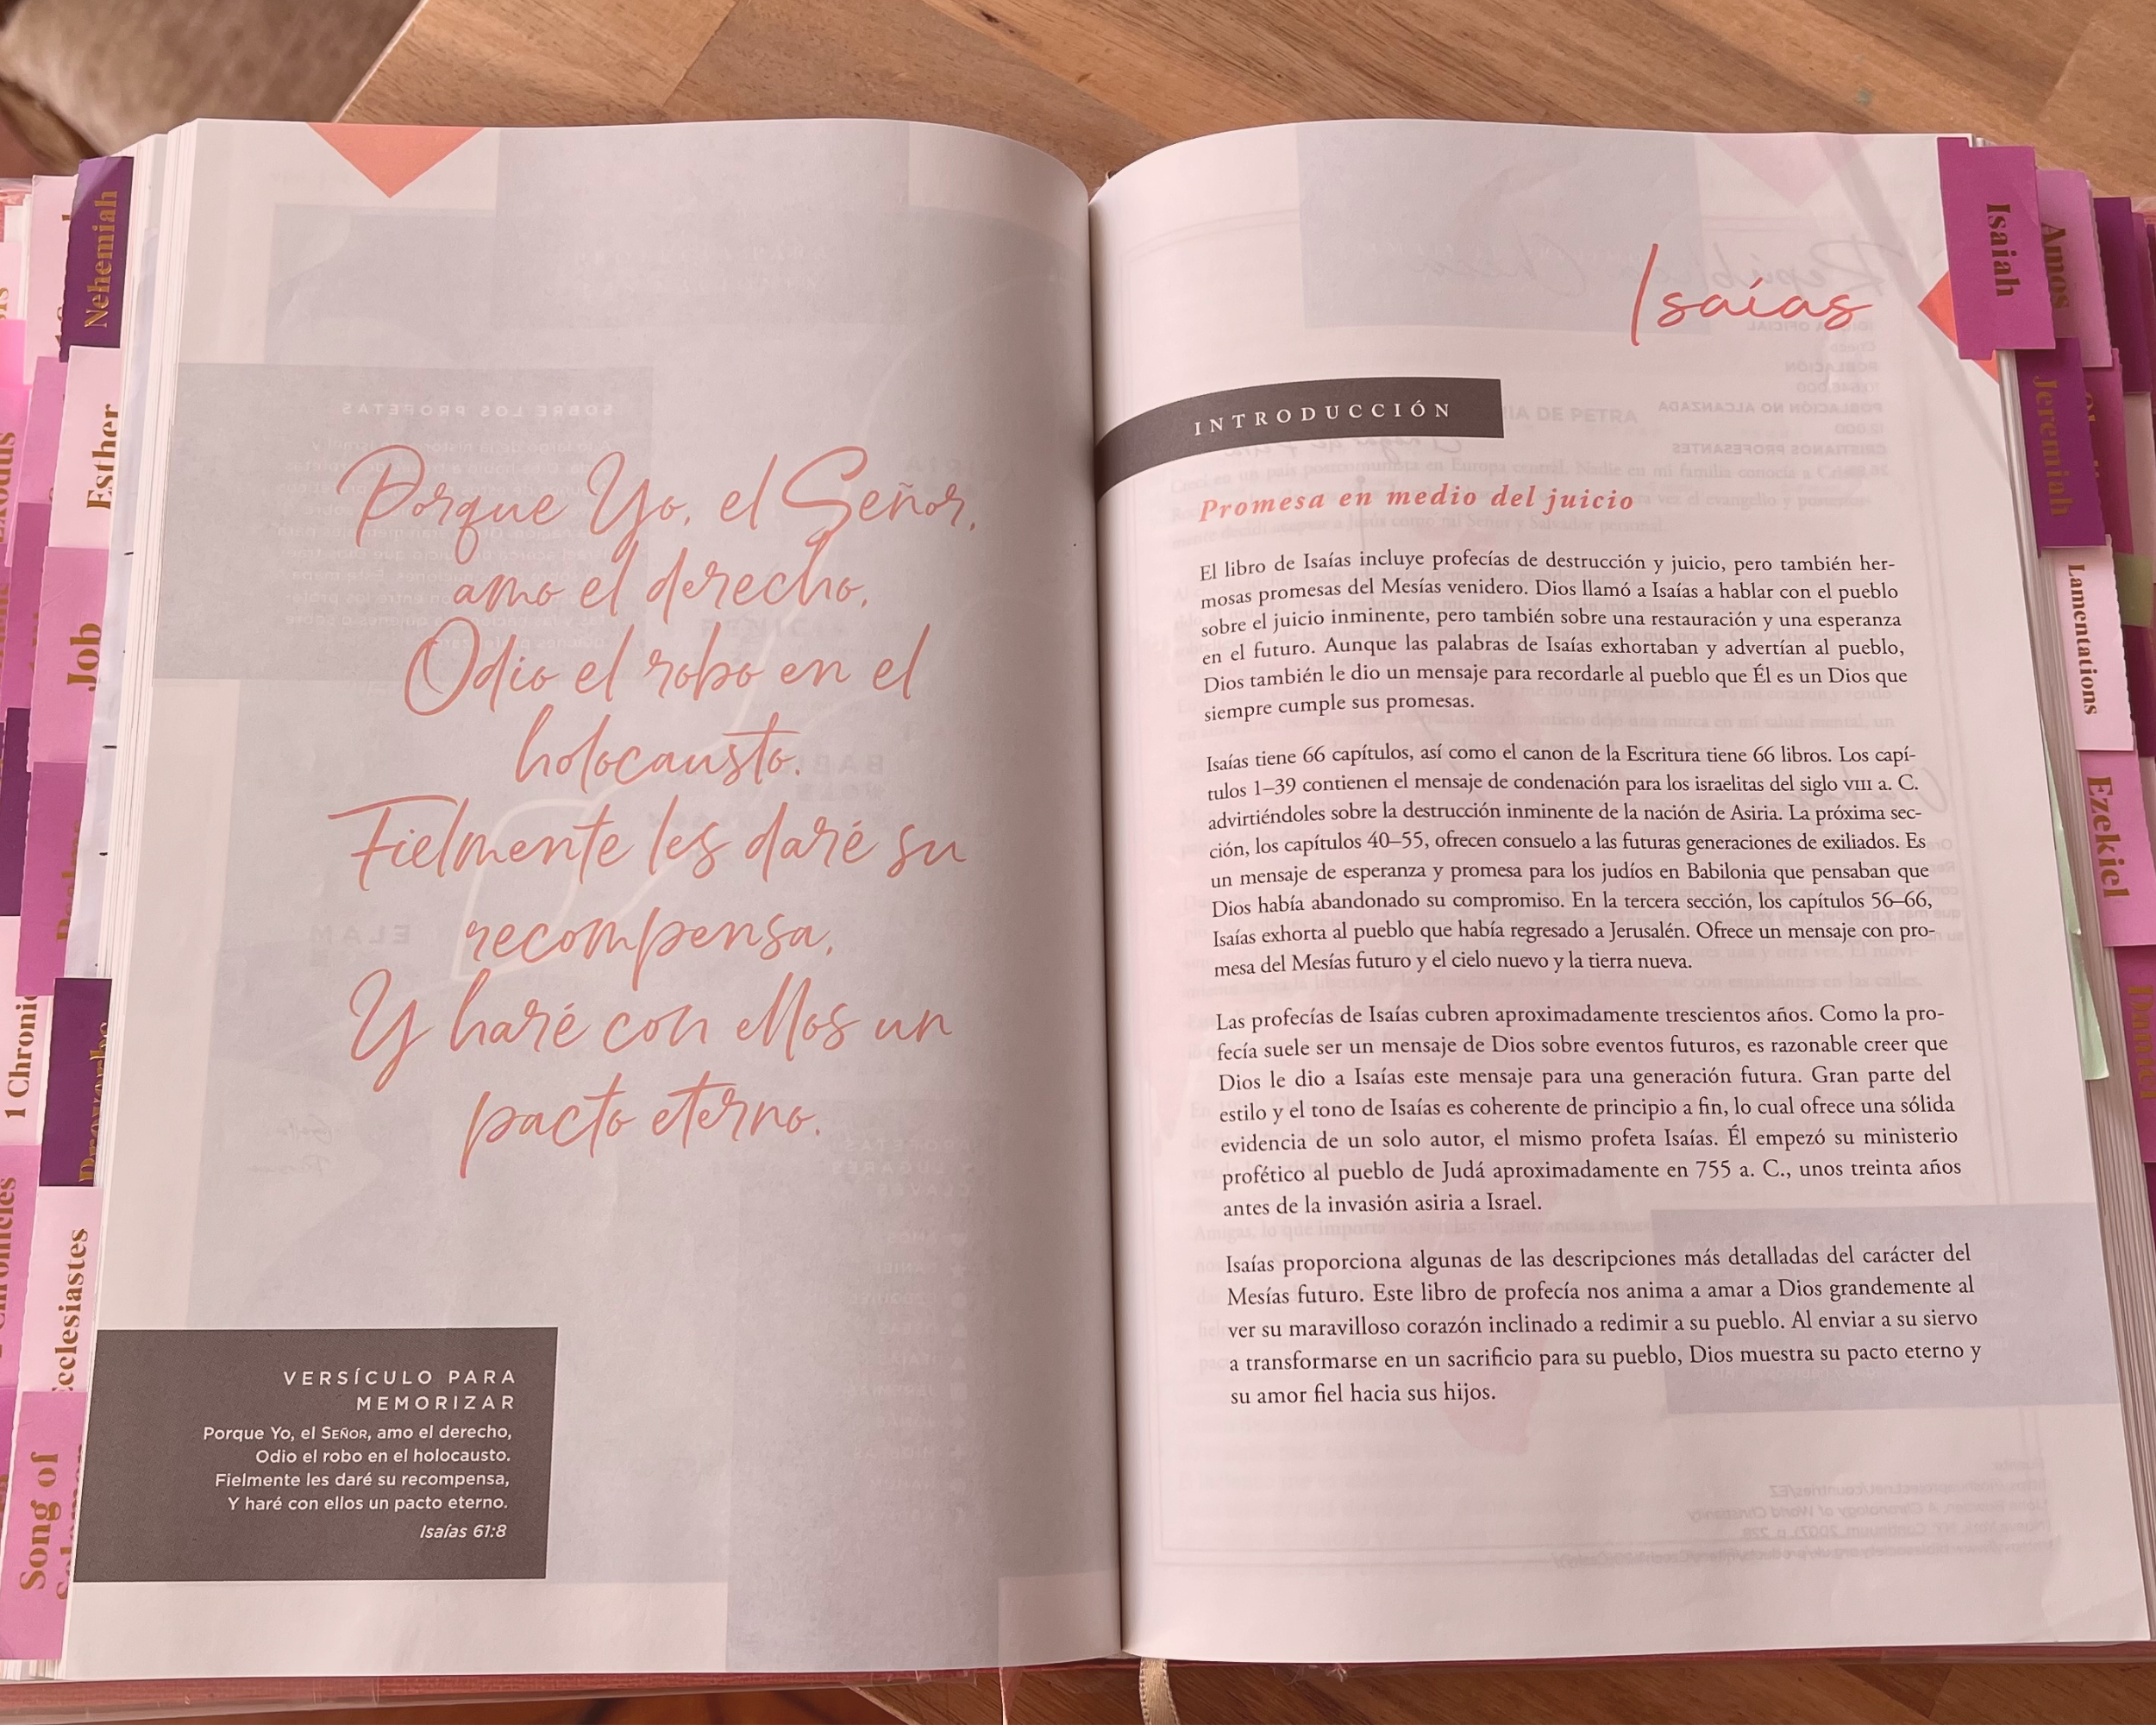 Nehemiah
Esther
Job
1 Chronic
Proverbs
Ecclesiastes
Song of
Porque Yo, el Señor,
amo el derecho,
Odio el robo en el
holocausto.
Fielmente les daré su
recompensa,
Y haré con ellos un
pacto eterno.
VERSÍCULO PARA
MEMORIZAR
Porque Yo, el SEÑOR, amo el derecho,
Odio el robo en el holocausto.
Fielmente les daré su recompensa,
Y haré con ellos un pacto eterno.
Isaías 61:8
Isaías
INTRODUCCIÓN
Promesa en medio del juicio
El libro de Isaías incluye profecías de destrucción y juicio, pero también her-
mosas promesas del Mesías venidero. Dios llamó a Isaías a hablar con el pueblo
sobre el juicio inminente, pero también sobre una restauración y una esperanza
en el futuro. Aunque las palabras de Isaías exhortaban y advertían al pueblo,
Dios también le dio un mensaje para recordarle al pueblo que Él es un Dios que
siempre cumple sus promesas.
Isaías tiene 66 capítulos, así como el canon de la Escritura tiene 66 libros. Los capí-
tulos 1–39 contienen el mensaje de condenación para los israelitas del siglo VIII a. C.
advirtiéndoles sobre la destrucción inminente de la nación de Asiria. La próxima sec-
ción, los capítulos 40–55, ofrecen consuelo a las futuras generaciones de exiliados. Es
un mensaje de esperanza y promesa para los judíos en Babilonia que pensaban que
Dios había abandonado su compromiso. En la tercera sección, los capítulos 56–66,
Isaías exhorta al pueblo que había regresado a Jerusalén. Ofrece un mensaje con pro-
mesa del Mesías futuro y el cielo nuevo y la tierra nueva.
Las profecías de Isaías cubren aproximadamente trescientos años. Como la pro-
fecía suele ser un mensaje de Dios sobre eventos futuros, es razonable creer que
Dios le dio a Isaías este mensaje para una generación futura. Gran parte del
estilo y el tono de Isaías es coherente de principio a fin, lo cual ofrece una sólida
evidencia de un solo autor, el mismo profeta Isaías. Él empezó su ministerio
profético al pueblo de Judá aproximadamente en 755 a. C., unos treinta años
antes de la invasión asiria a Israel.
Isaías proporciona algunas de las descripciones más detalladas del carácter del
Mesías futuro. Este libro de profecía nos anima a amar a Dios grandemente al
ver su maravilloso corazón inclinado a redimir a su pueblo. Al enviar a su siervo
a transformarse en un sacrificio para su pueblo, Dios muestra su pacto eterno y
su amor fiel hacia sus hijos.
Isaiah
Amos
Jeremiah
Lamentations
Ezekiel
Daniel